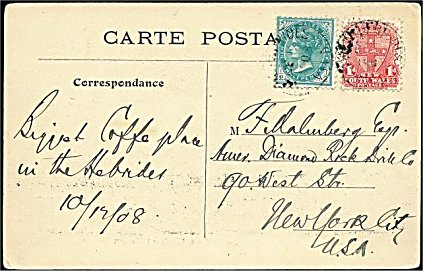 CARTE POSTA
Correspondance
Biggest Coffe place
in the Hebrides
10/12/08.
M F. Malmberg Esq.
Amer. Diamond Rock Drill Co
90 West Str.
New York City
U.S.A.
1d 1d
NEW
SOUTH WALES